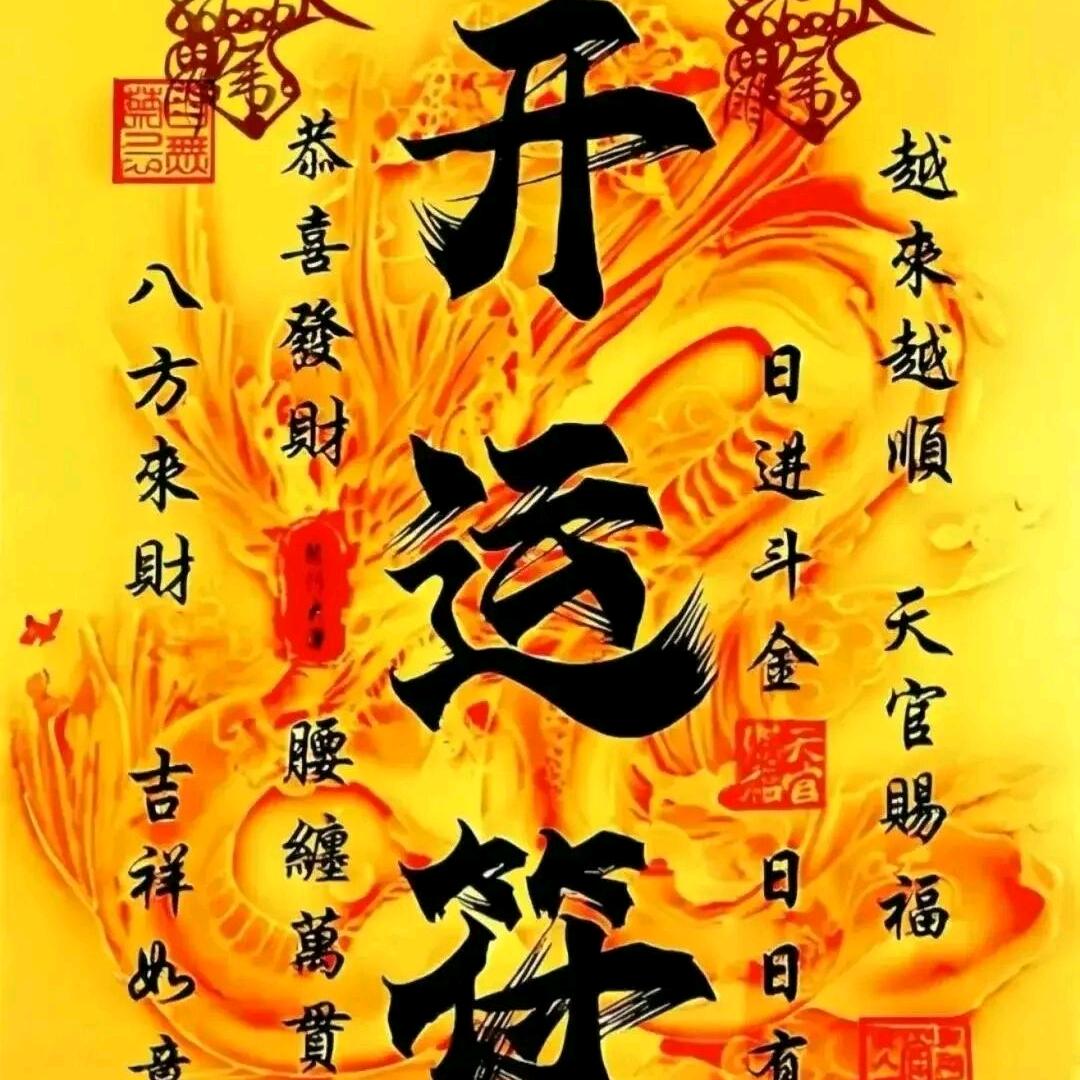 越來越順 天官賜福
日进斗金 日日有
开运符
恭喜發財 腰纏萬貫
八方來財 吉祥如意
天官賜福